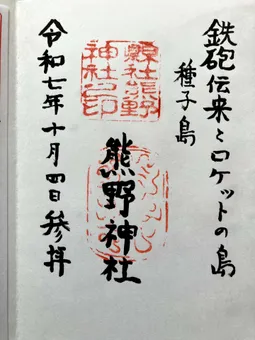 鉄砲伝来とロケットの島
種子島
縣社熊野神社之印
熊野神社
令和七年十月四日参拝